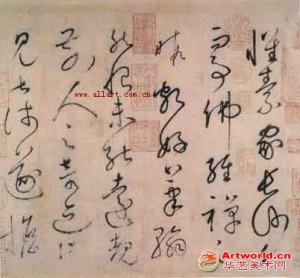 懷素家長沙幼
而事佛經禪之
暇頗好筆翰
然恨未能遠覩
前人之奇迹所
見甚淺遂擔
www.allart.com.cn
Artworld.cn
华艺美术网